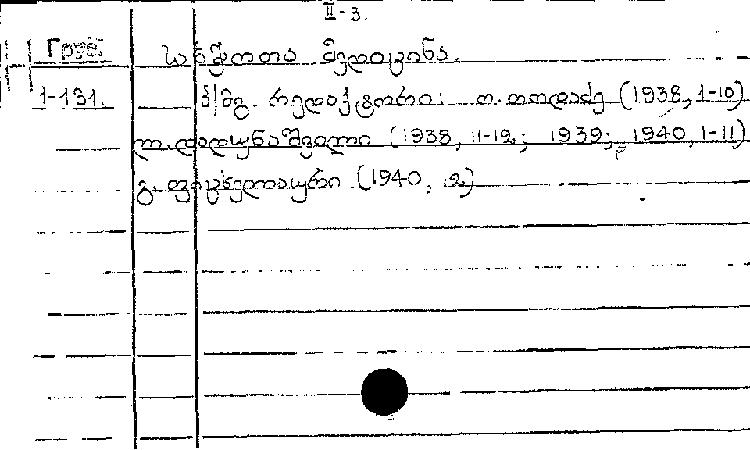 II-3.
Груз. საბჭოთა მედიცინა.
1-131. პ/მგ. რედაქტორი: თ. თოდაძე (1938, 1-10)
(1938, 11-12; 1939; 1940, 1-11)
(1940, 12)